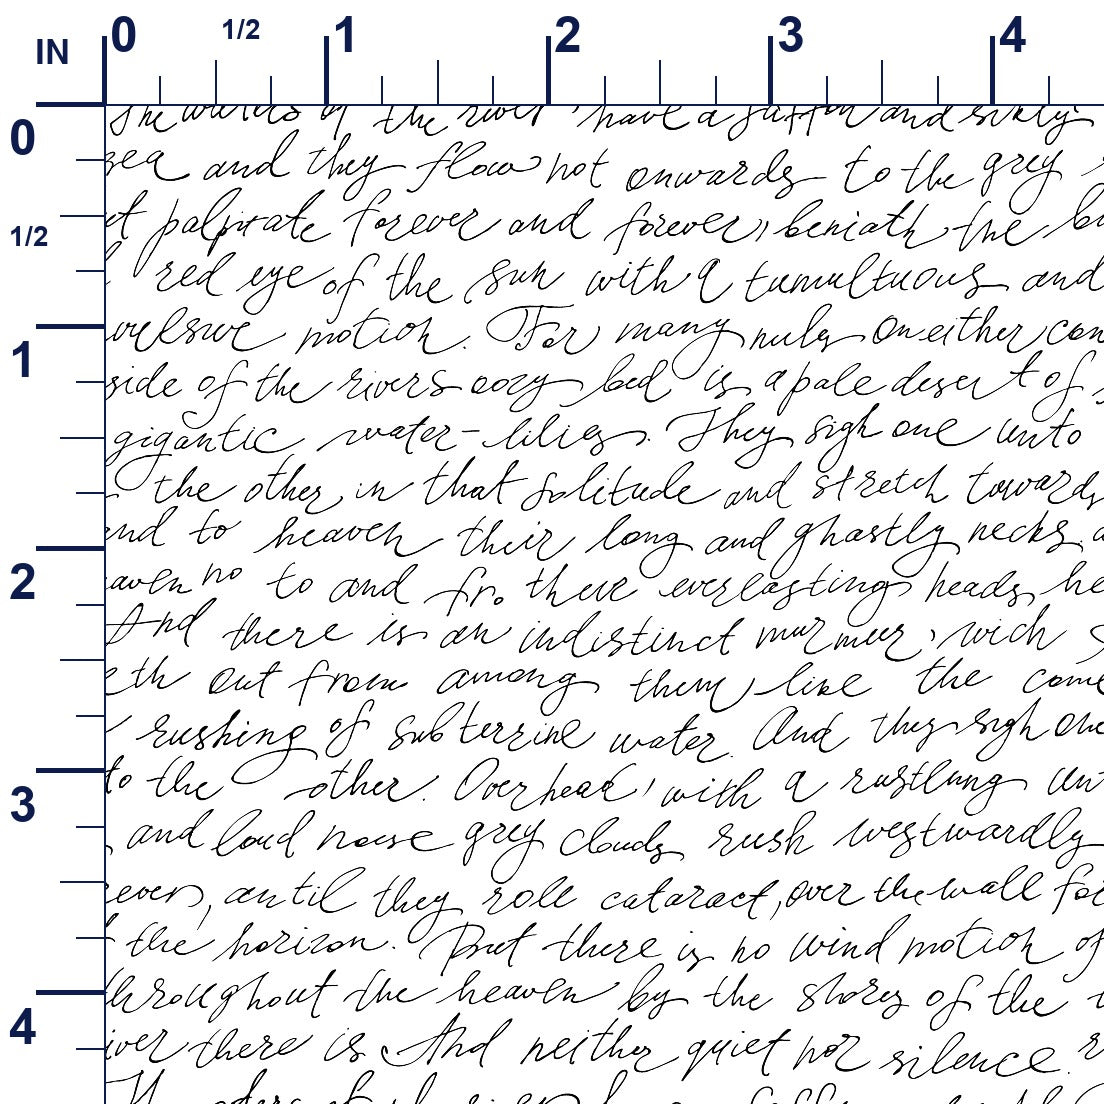 IN 0 1/2 1 2 3 4
0
1/2
1
2
3
4
The waters of the river have a saffron and sickly
sea and they flow not onwards to the grey
ut palpitate forever and forever, beneath the
red eye of the sun with a tumultuous and
vulsive motion. For many miles on either con
side of the rivers oozy bed is a pale desert of
gigantic water-lilies. They sigh one unto
the other in that solitude and stretch towards
and to heaven their long and ghastly necks
aven no to and fro there everlasting heads he
And there is an indistinct murmur, wich
eth out from among them like the come
rushing of subterrine water. And they sigh one
to the other. Overhead, with a rustlung un
and loud noise grey clouds rush westwardly
ever, until they role cataract, over the wall for
the horizon. But there is no wind motion of
throughout the heaven by the shores of the
iver there is And neither quiet nor silence.